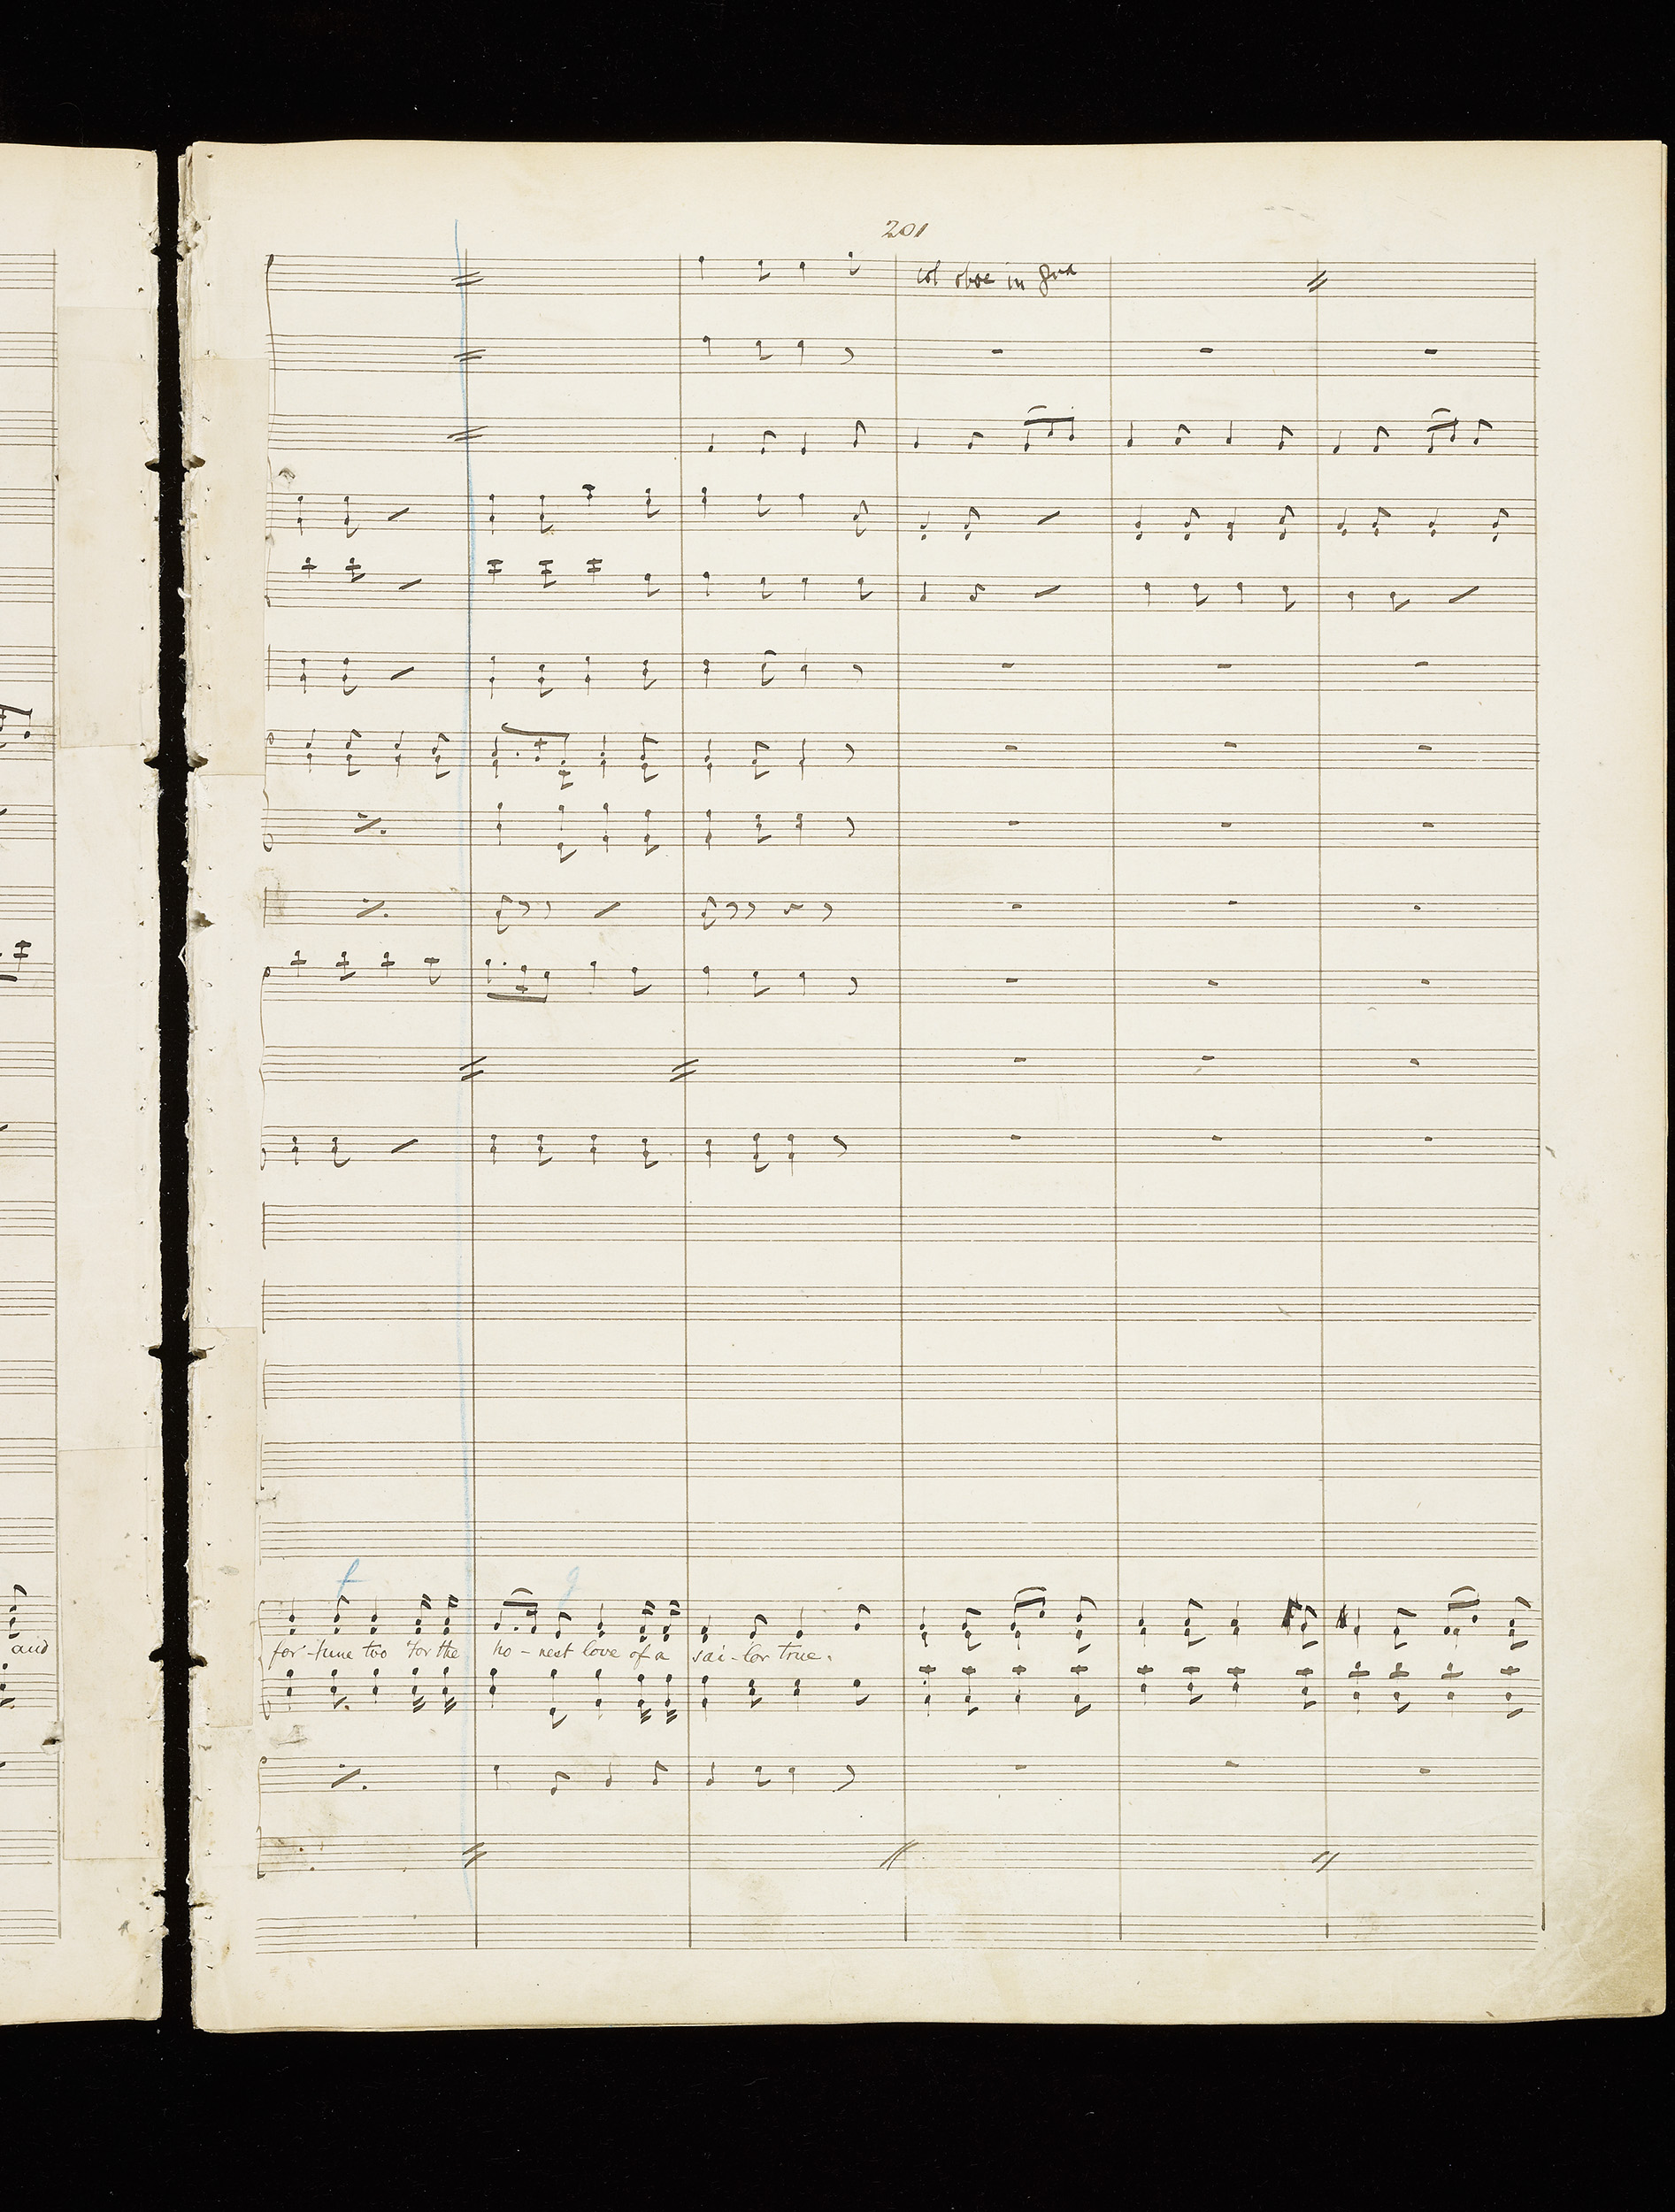 201
col oboe in 8va
f g
and
for-tune too for the ho-nest love of a sai-lor true.